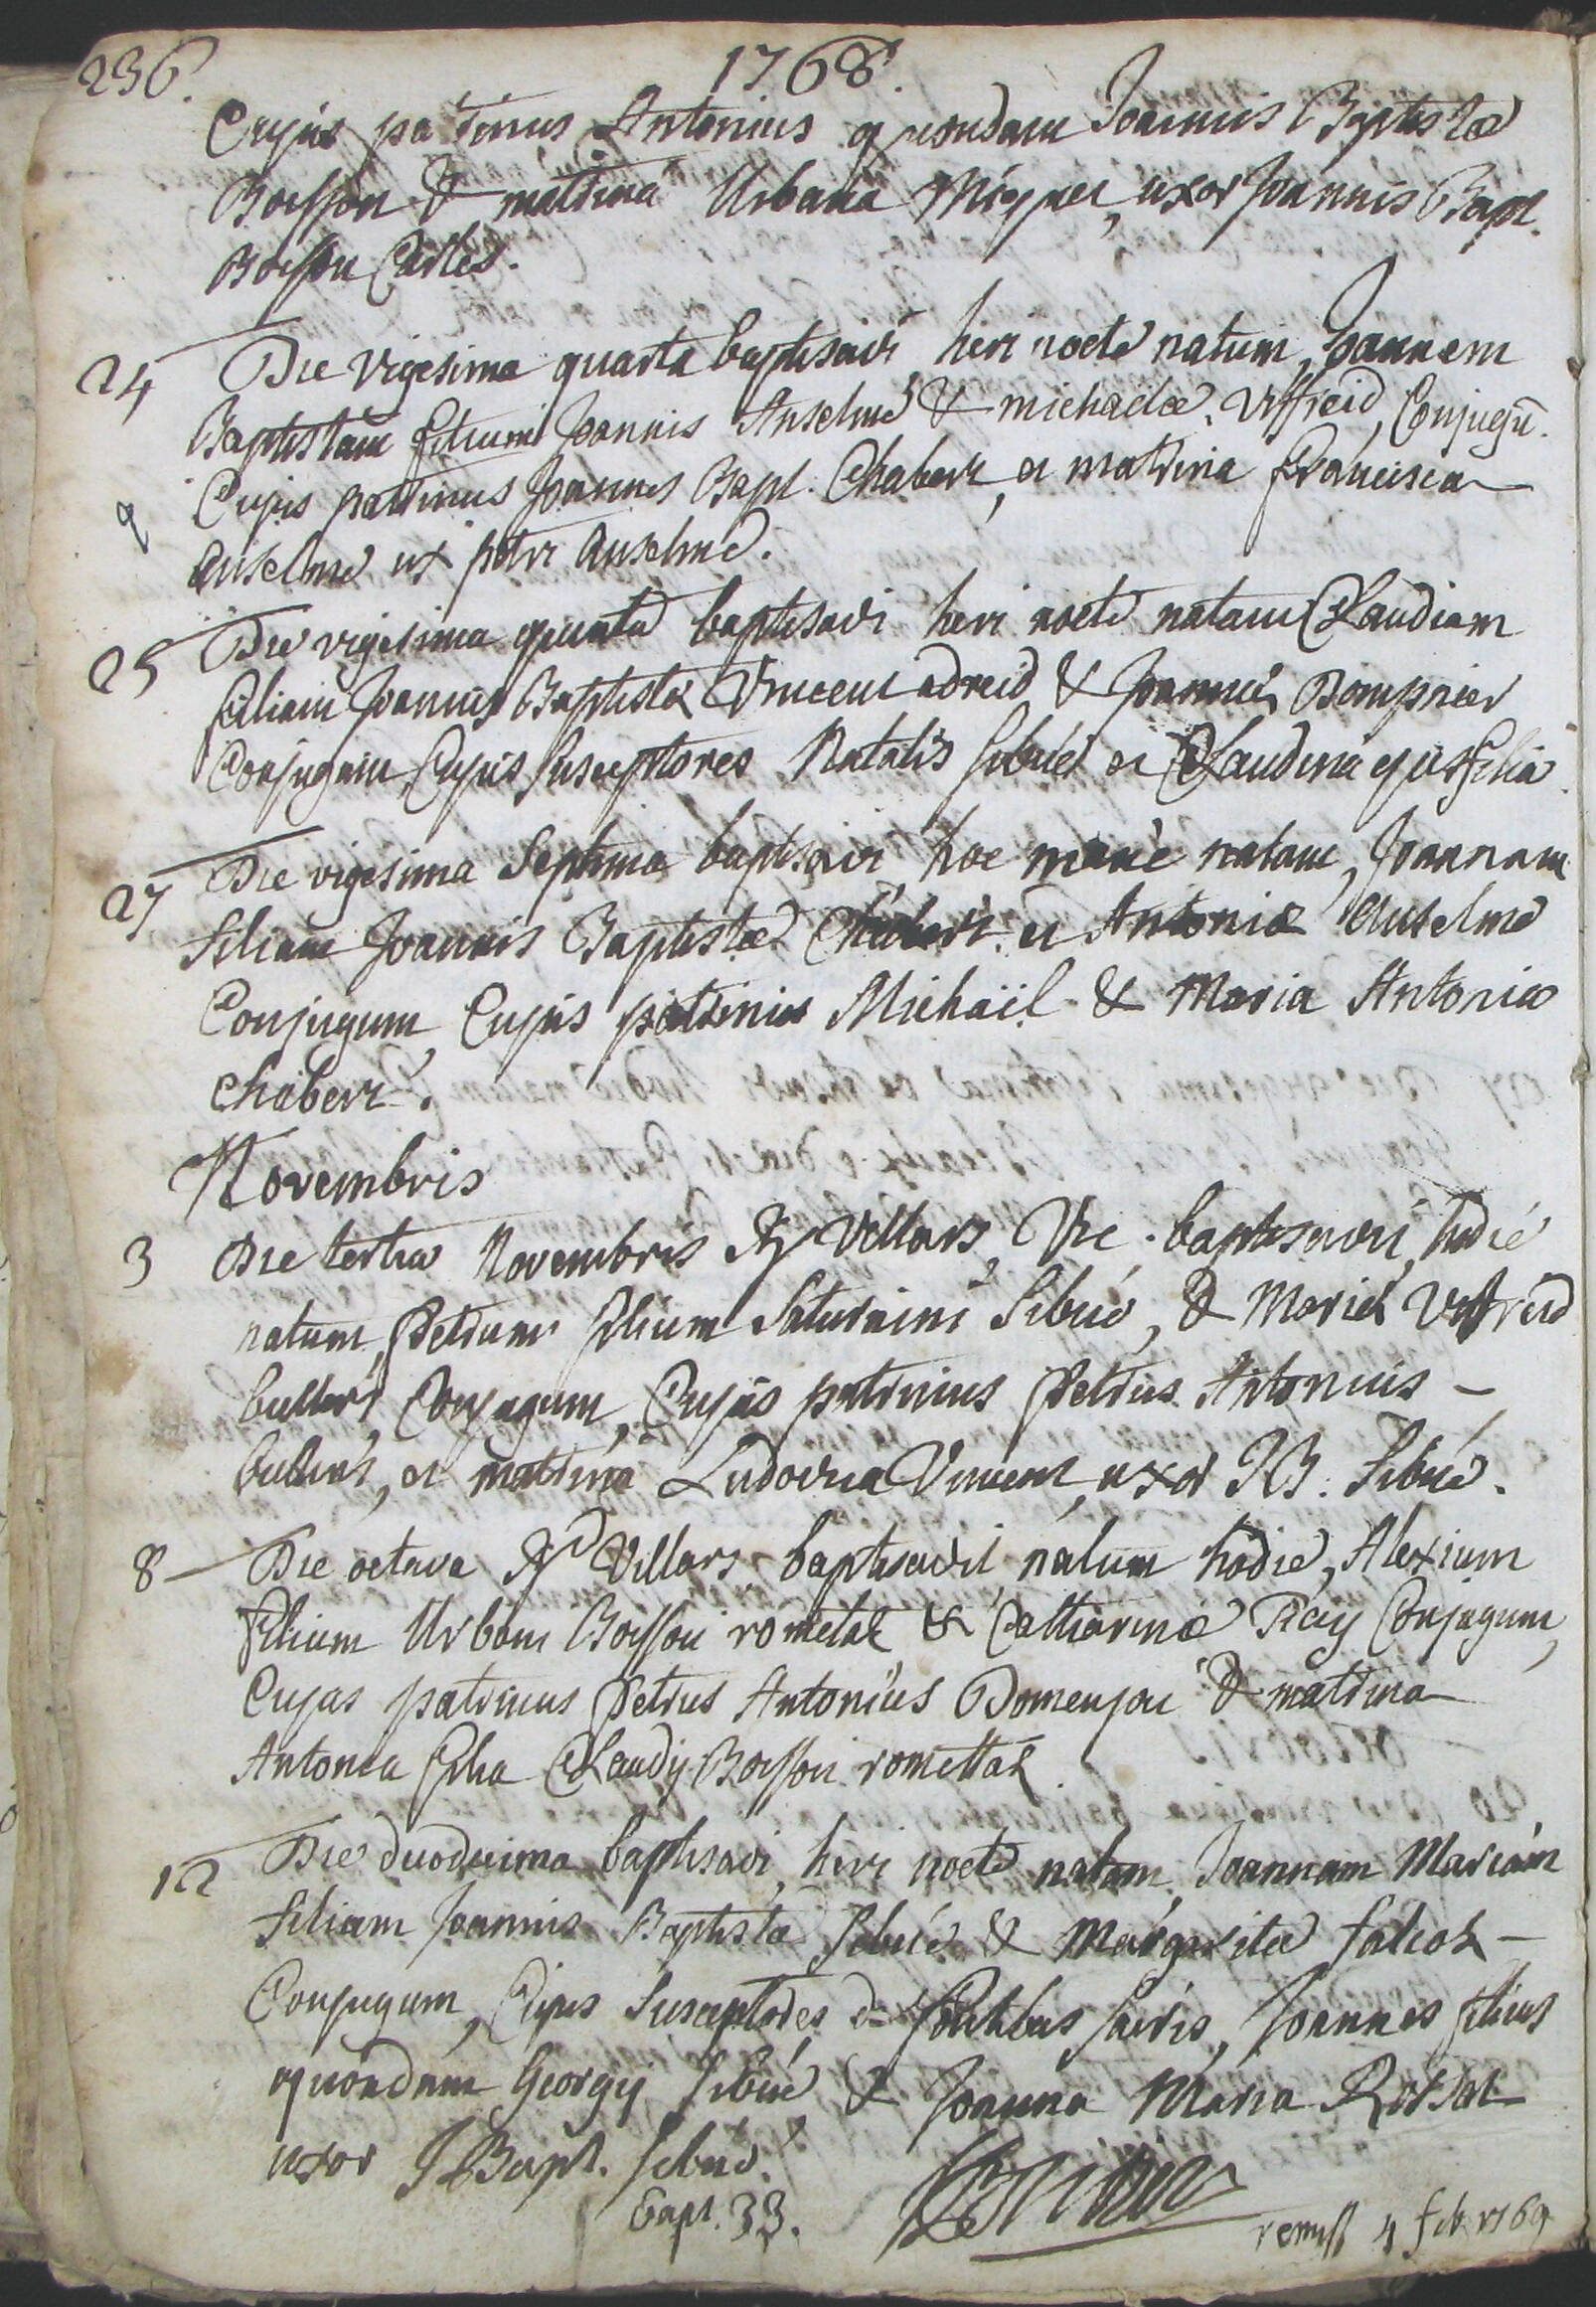 236.
1768.
Cujus patrinus Antonius quondam Joannis Baptistæ
Boisson & matrina Urbana Miquet, uxor Joannis Bapt.
Boisson Castes.
24 Die vigesima quarta baptisavi heri nocte natum, Joannem
Baptistam filium Joannis Anselme & michaelæ Viffreid, Conjugũ.
Cujus patrinus Joannes Bapt. Chabert, et matrina francisca
Anselme ux petri Anselme.
25 Die vigesima quinta baptisavi heri nocte natam Claudiam
filiam Joannis Baptistæ Vincent adreid & Joannæ Dompnier
Conjugum, Cujus susceptores Natalis Sibué et Claudina ejus filia.
27 Die vigesima septima baptisavi hoc manè natam, Joannam
filiam Joannis Baptistæ Chabert et Antoniæ Anselme
Conjugum, Cujus patrinus Michaël & Maria Antonia
Chabert.
Novembris
3 Die tertia Novembris Rd Villars, Vic. baptisavi, hodie
natum, Petrum filium Saturnini Sibué, & Mariæ Viffreid
Conjugum, Cujus patrinus Petrus Antonius
et matrina Ludovica Vincent, uxor JB. Sibué.
8 Die octava Rd Villars baptisavit natum hodie, Alexium
filium Urbani Boisson rometaz & Catharinæ Ray Conjugum,
Cujus patrinus Petrus Antonius Domenjou & matrina
Antonia filia Claudij Boisson romettaz
12 Die duodecima baptisavi, heri nocte natam, Joannam Mariam
filiam Joannis Baptistæ Sibué & Margaritæ falcoz
Conjugum, Cujus susceptores de fontibus sacris, Joannes filius
quondam Georgij Sibué & Joanna Maria
uxor J Bapt. Sibué.
Bapt. 33.
remiss 4 feb. 1769